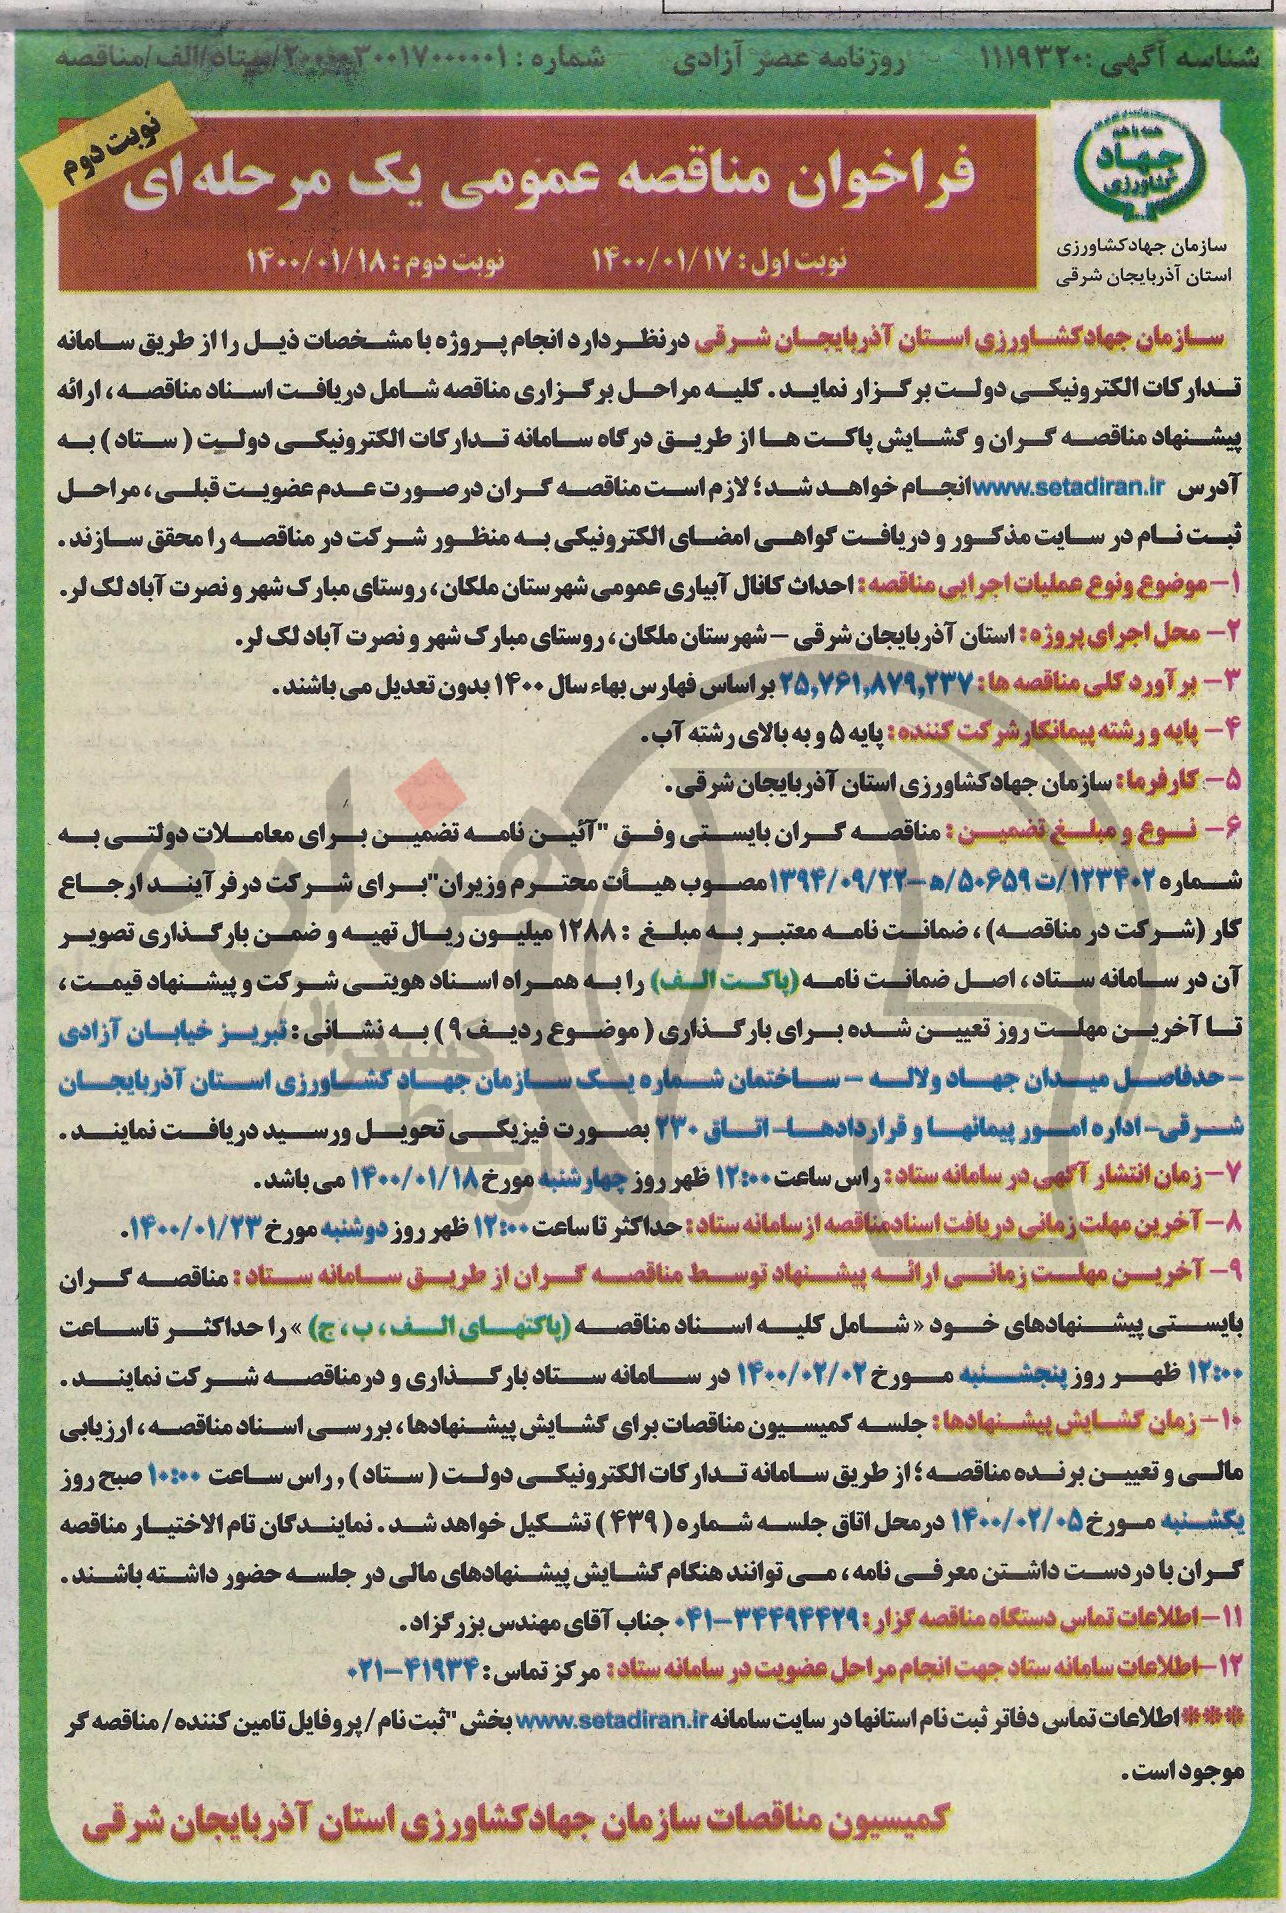 شناسه آگهی : ۱۱۱۹۳۲۰ روزنامه عصر آزادی شماره : ۲۰۰۰۰۳۰۰۱۷۰۰۰۰۰۱/ستاد/الف/مناقصه
نوبت دوم
همه با هم
جهاد
کشاورزی
سازمان جهادکشاورزی
استان آذربایجان شرقی
فراخوان مناقصه عمومی یک مرحله‌ای
نوبت اول : ۱۴۰۰/۰۱/۱۷ نوبت دوم : ۱۴۰۰/۰۱/۱۸
سازمان جهادکشاورزی استان آذربایجان شرقی درنظر دارد انجام پروژه با مشخصات ذیل را از طریق سامانه
تدارکات الکترونیکی دولت برگزار نماید . کلیه مراحل برگزاری مناقصه شامل دریافت اسناد مناقصه ، ارائه
پیشنهاد مناقصه گران و گشایش پاکت ها از طریق درگاه سامانه تدارکات الکترونیکی دولت ( ستاد ) به
آدرس www.setadiran.ir انجام خواهد شد ؛ لازم است مناقصه گران درصورت عدم عضویت قبلی ، مراحل
ثبت نام در سایت مذکور و دریافت گواهی امضای الکترونیکی به منظور شرکت در مناقصه را محقق سازند .
۱- موضوع ونوع عملیات اجرایی مناقصه : احداث کانال آبیاری عمومی شهرستان ملکان ، روستای مبارک شهر و نصرت آباد لک لر.
۲- محل اجرای پروژه : استان آذربایجان شرقی – شهرستان ملکان ، روستای مبارک شهر و نصرت آباد لک لر.
۳- برآورد کلی مناقصه ها : ۲۵,۷۶۱,۸۷۹,۲۳۷ براساس فهارس بهاء سال ۱۴۰۰ بدون تعدیل می باشند .
۴- پایه و رشته پیمانکار شرکت کننده : پایه ۵ و به بالای رشته آب .
۵- کارفرما : سازمان جهادکشاورزی استان آذربایجان شرقی .
۶- نوع و مبلغ تضمین : مناقصه گران بایستی وفق "آئین نامه تضمین برای معاملات دولتی به
شماره ۱۲۳۴۰۲/ت ۵۰۶۵۹/ه-۱۳۹۴/۰۹/۲۲ مصوب هیأت محترم وزیران" برای شرکت درفرآیند ارجاع
کار (شرکت در مناقصه) ، ضمانت نامه معتبر به مبلغ : ۱۲۸۸ میلیون ریال تهیه و ضمن بارگذاری تصویر
آن در سامانه ستاد ، اصل ضمانت نامه (پاکت الف) را به همراه اسناد هویتی شرکت و پیشنهاد قیمت ،
تا آخرین مهلت روز تعیین شده برای بارگذاری ( موضوع ردیف ۹ ) به نشانی : تبریز خیابان آزادی
– حدفاصل میدان جهاد ولاله – ساختمان شماره یک سازمان جهاد کشاورزی استان آذربایجان
شرقی- اداره امور پیمانها و قراردادها- اتاق ۲۳۰ بصورت فیزیکی تحویل ورسید دریافت نمایند .
۷- زمان انتشار آگهی در سامانه ستاد : راس ساعت ۱۲:۰۰ ظهر روز چهارشنبه مورخ ۱۴۰۰/۰۱/۱۸ می باشد .
۸- آخرین مهلت زمانی دریافت اسنادمناقصه ازسامانه ستاد : حداکثر تا ساعت ۱۲:۰۰ ظهر روز دوشنبه مورخ ۱۴۰۰/۰۱/۲۳.
۹- آخرین مهلت زمانی ارائه پیشنهاد توسط مناقصه گران از طریق سامانه ستاد : مناقصه گران
بایستی پیشنهادهای خود « شامل کلیه اسناد مناقصه (پاکتهای الف ، ب ، ج) » را حداکثر تاساعت
۱۲:۰۰ ظهر روز پنجشنبه مورخ ۱۴۰۰/۰۲/۰۲ در سامانه ستاد بارگذاری و درمناقصه شرکت نمایند .
۱۰- زمان گشایش پیشنهادها : جلسه کمیسیون مناقصات برای گشایش پیشنهادها ، بررسی اسناد مناقصه ، ارزیابی
مالی و تعیین برنده مناقصه ؛ از طریق سامانه تدارکات الکترونیکی دولت ( ستاد ) , راس ساعت ۱۰:۰۰ صبح روز
یکشنبه مورخ ۱۴۰۰/۰۲/۰۵ درمحل اتاق جلسه شماره ( ۴۳۹ ) تشکیل خواهد شد . نمایندگان تام الاختیار مناقصه
گران با در دست داشتن معرفی نامه ، می توانند هنگام گشایش پیشنهادهای مالی در جلسه حضور داشته باشند .
۱۱- اطلاعات تماس دستگاه مناقصه گزار : ۳۴۴۹۴۴۲۹-۰۴۱ جناب آقای مهندس بزرگزاد .
۱۲- اطلاعات سامانه ستاد جهت انجام مراحل عضویت در سامانه ستاد : مرکز تماس : ۴۱۹۳۴-۰۲۱
***اطلاعات تماس دفاتر ثبت نام استانها در سایت سامانه www.setadiran.ir بخش "ثبت نام / پروفایل تامین کننده / مناقصه گر
موجود است .
کمیسیون مناقصات سازمان جهادکشاورزی استان آذربایجان شرقی